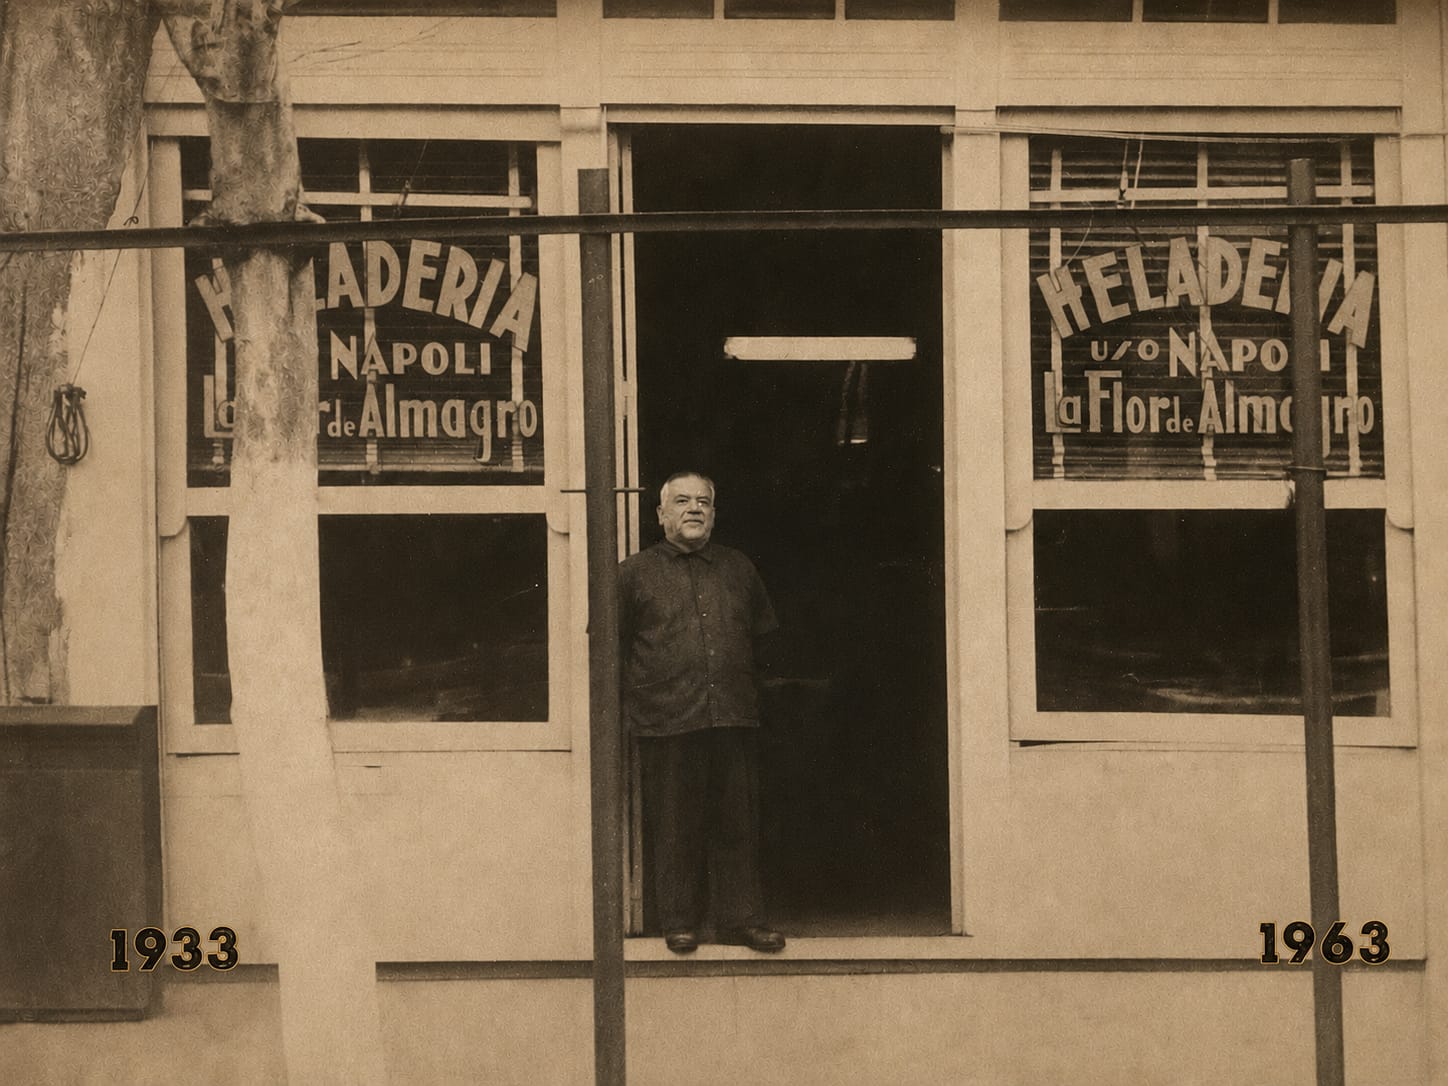 HELADERIA
NAPOLI
La Flor de Almagro
HELADERIA
U/O NAPOLI
La Flor de Almagro
1933
1963